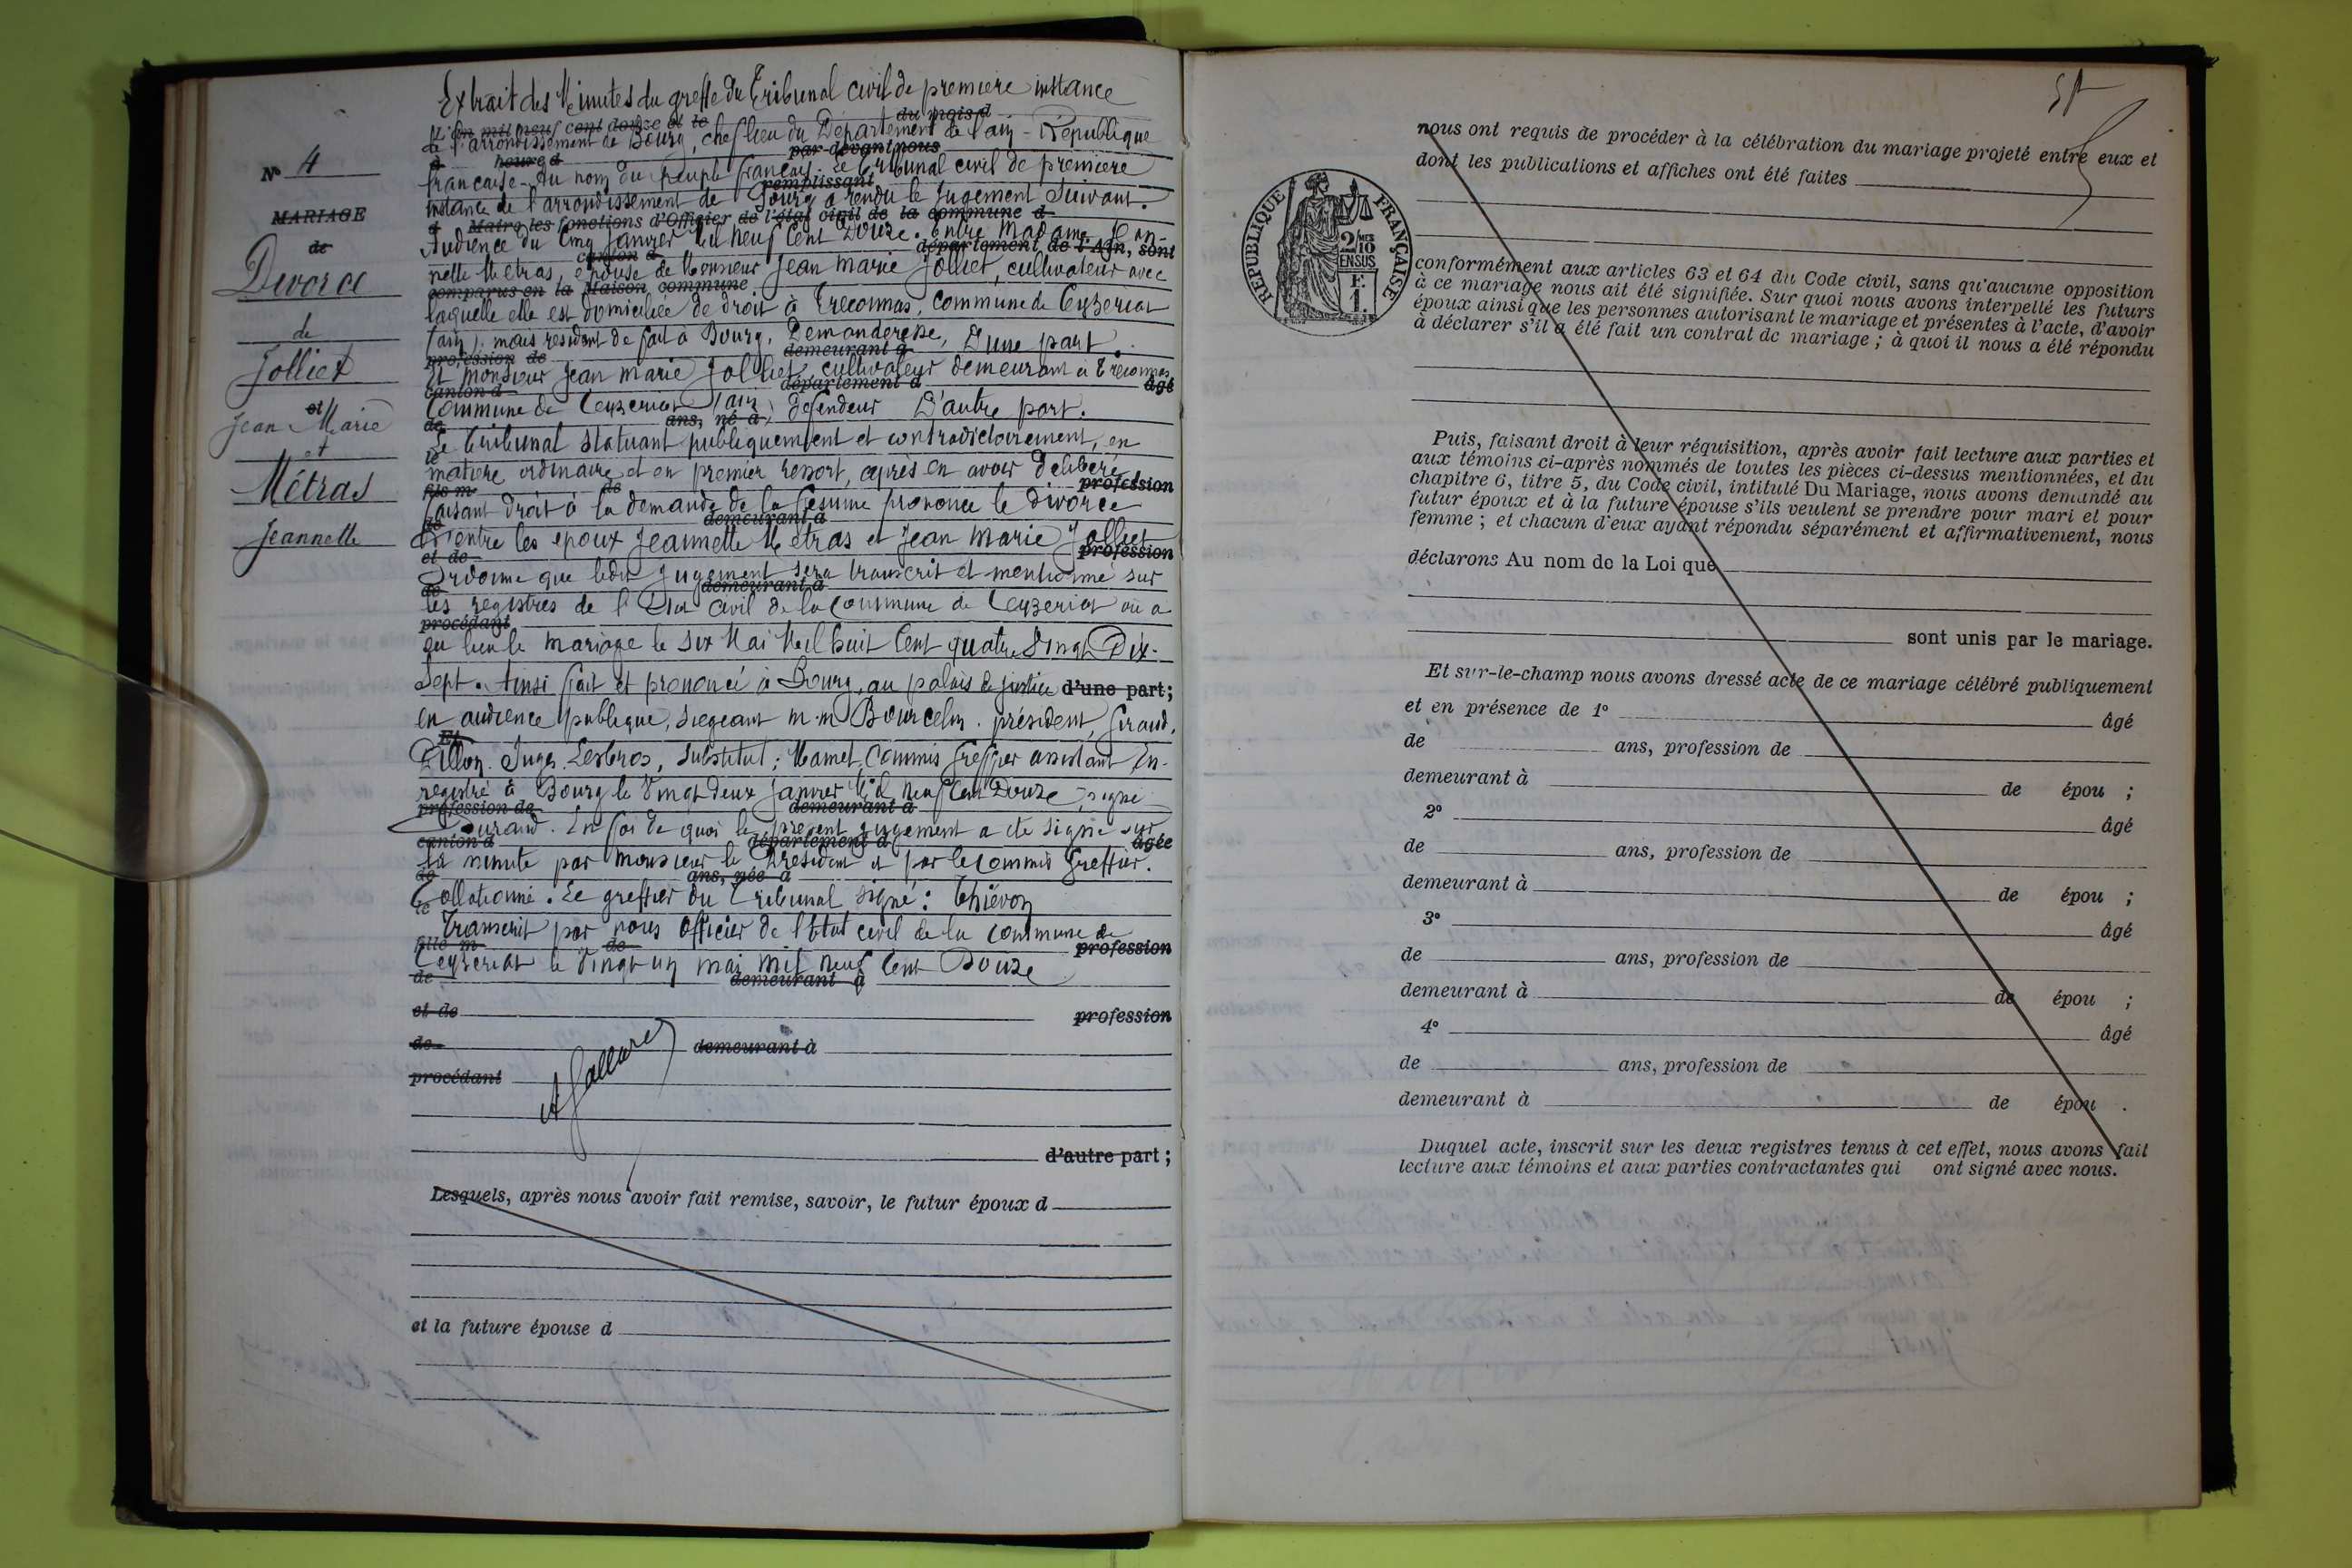 Extrait des Minutes du greffe du Tribunal civil de premiere instance
L'an mil neuf cent douze et le du mois d
de l'arrondissement de Bourg, chef lieu du Département de l'ain - République
à heure d par-devant nous
française - Au nom du peuple français. Le Tribunal civil de première
remplissant
instance de l'arrondissement de Bourg a rendu le jugement suivant.
d Maire les fonctions d'Officier de l'état civil de la commune d
Audience du Cinq Janvier Mil neuf Cent Douze. Entre Madame Jean-
canton d département de l'Ain, sont
nette Metras, épouse de Monsieur Jean Marie Jolliet, cultivateur avec
comparus en la Maison commune
laquelle elle est domiciliée de droit à Treconnas, Commune de Ceyzeriat
(ain), mais residant de fait à Bourg, Demanderesse, D'une part.
profession de demeurant à
Et monsieur Jean marie Jolliet, cultivateur demeurant à Treconnas
canton d département d âgé
Commune de Ceyzeriat (ain) défendeur D'autre part.
de ans, né à
Le Tribunal statuant publiquement et contradictoirement, en
le
matière ordinaire et en premier ressort, après en avoir délibéré
fils m de profession
faisant droit à la demande de la femme prononce le divorce
de demeurant à
D'entre les epoux Jeannette Metras et Jean Marie Jolliet
et de profession
Ordonne que ledit Jugement sera transcrit et mentionné sur
de demeurant à
les registres de l'Etat Civil de la Commune de Ceyzeriat où a
procédant
eu lieu le mariage le Six Mai Mil huit Cent quatre Vingt Dix-
Sept. Ainsi fait et prononcé à Bourg, au palais de justice d'une part;
en audience publique, siegeant m.m Bourcelin. président, Giraud,
Et
Dillon. Juges. Lesbros, Substitut; Mamet, Commis Greffier assistant En-
registré à Bourg le Vingt deux Janvier Mil Neuf Cent Douze, signé
profession de demeurant à
Durand. En foi de quoi le présent jugement a été signé sur
canton d département d âgée
la minute par monsieur le Président et par le Commis Greffier.
de ans, née à
Collationné. Le greffier du Tribunal signé: Thiévon
le
Transcrit par nous Officier de l'Etat civil de la Commune de
fille m de profession
Ceyzeriat le Vingt un mai mil neuf Cent Douze
de demeurant à
et de profession
de demeurant à
procédant
d'autre part;
Lesquels, après nous avoir fait remise, savoir, le futur époux d
et la future épouse d
N° 4
MARIAGE
de
Divorce
de
Jolliet
et
Jean Marie
et
Métras
Jeannette
nous ont requis de procéder à la célébration du mariage projeté entre eux et
dont les publications et affiches ont été faites
REPUBLIQUE FRANÇAISE
2/10 MES
EN SUS
F.
1.
conformément aux articles 63 et 64 du Code civil, sans qu'aucune opposition
à ce mariage nous ait été signifiée. Sur quoi nous avons interpellé les futurs
époux ainsi que les personnes autorisant le mariage et présentes à l'acte, d'avoir
à déclarer s'il a été fait un contrat de mariage; à quoi il nous a été répondu
Puis, faisant droit à leur réquisition, après avoir fait lecture aux parties et
aux témoins ci-après nommés de toutes les pièces ci-dessus mentionnées, et du
chapitre 6, titre 5, du Code civil, intitulé Du Mariage, nous avons demandé au
futur époux et à la future épouse s'ils veulent se prendre pour mari et pour
femme; et chacun d'eux ayant répondu séparément et affirmativement, nous
déclarons Au nom de la Loi que
sont unis par le mariage.
Et sur-le-champ nous avons dressé acte de ce mariage célébré publiquement
et en présence de 1° âgé
de ans, profession de
demeurant à de épou ;
2° âgé
de ans, profession de
demeurant à de épou ;
3° âgé
de ans, profession de
demeurant à de épou ;
4° âgé
de ans, profession de
demeurant à de épou .
Duquel acte, inscrit sur les deux registres tenus à cet effet, nous avons fait
lecture aux témoins et aux parties contractantes qui ont signé avec nous.